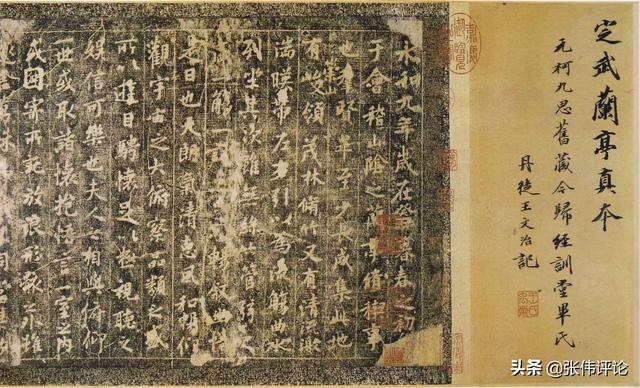 定武蘭亭真本
元柯九思舊藏今歸經訓堂畢氏
丹徒王文治記
永和九年歲在癸丑暮春之初
于會稽山陰之蘭亭脩稧事
也羣賢畢至少長咸集此地
有峻領茂林脩竹又有清流激
崇山
湍暎帶左右引以為流觴曲水
列坐其次雖無絲竹管弦之
一觴一詠亦足以暢敘幽情
是日也天朗氣清惠風和暢仰
觀宇宙之大俯察品類之盛
所以遊目騁懷足以極視聽之
娛信可樂也夫人之相與俯仰
一世或取諸懷抱悟言一室之內
或因寄所託放浪形骸之外雖
头条 @张伟评论